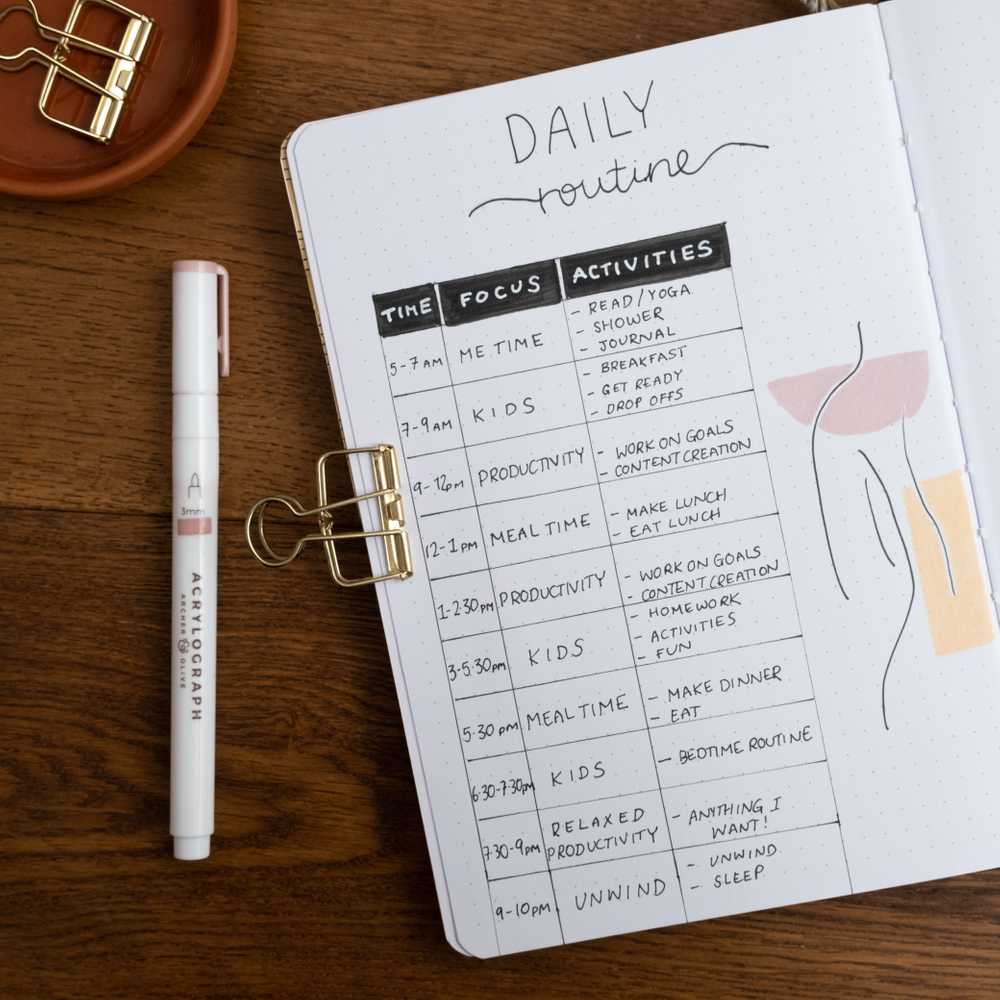 DAILY
routine
TIME FOCUS ACTIVITIES
5-7AM ME TIME - READ/YOGA
- SHOWER
- JOURNAL
7-9AM KIDS - BREAKFAST
- GET READY
- DROP OFFS
9-12pm PRODUCTIVITY - WORK ON GOALS
- CONTENT CREATION
12-1pm MEAL TIME - MAKE LUNCH
- EAT LUNCH
1-230pm PRODUCTIVITY - WORK ON GOALS
- CONTENT CREATION
3-5·30pm KIDS - HOMEWORK
- ACTIVITIES
- FUN
5·30pm MEAL TIME - MAKE DINNER
- EAT
6·30-7·30pm KIDS - BEDTIME ROUTINE
7·30-9pm RELAXED PRODUCTIVITY - ANYTHING I
WANT!
9-10pm UNWIND - UNWIND
- SLEEP
3mm
ACRYLOGRAPH
ARCHER & OLIVE